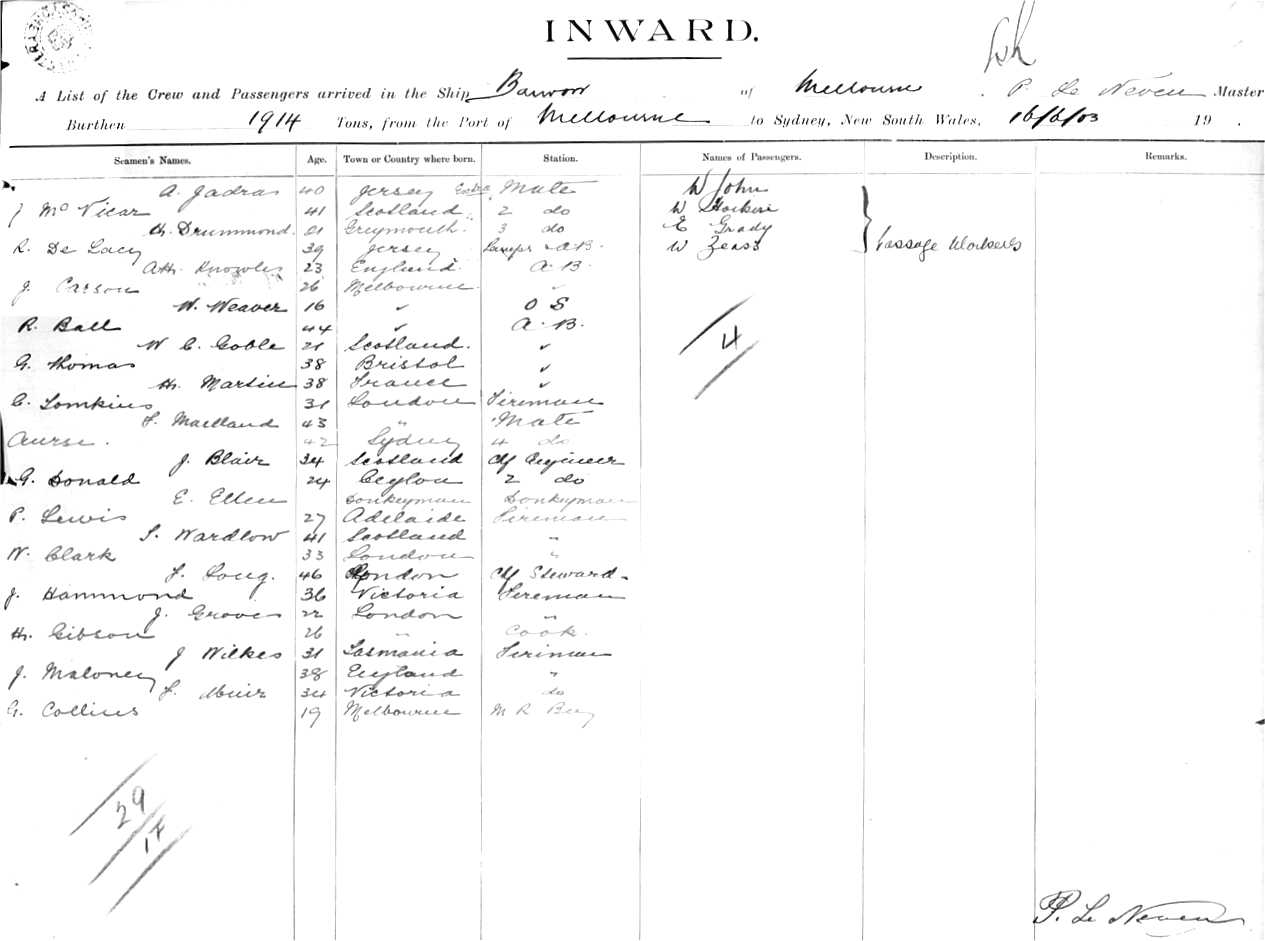 INWARD.
A List of the Crew and Passengers arrived in the Ship Barwon of Melbourne. P. Le Neven Master
Burthen 1914 Tons, from the Port of Melbourne to Sydney, New South Wales, 16/6/03 19 .
Seamen's Names. Age. Town or Country where born. Station. Names of Passengers. Description. Remarks.
A. Jadras 40 Jersey Extra Mate W John
J McVicar 41 Scotland 2 do W
H. Drummond 21 Greymouth 3 do E Grady
R. De Lacy 39 Jersey Lamps & AB W Passage Workers
Athr Knowles 23 England A.B.
J. Carson 26 Melbourne "
W. Weaver 16 " O S
R. Ball 44 " A.B. 4
W C. Coble 21 Scotland. "
G. Thomas 38 Bristol "
Hy. Martin 38 France "
C. Tomkins 31 London Fireman
F. Maitland 43 " Mate
42 Sydney 4 do
J. Blair 34 Scotland Chf Engineer
G. Donald 24 Ceylon 2 do
E. Ellen Donkeyman Donkeyman
P. Lewis 27 Adelaide Fireman
S. Wardlow 41 Scotland "
W. Clark 33 London "
F. Long. 46 London Chf Steward
J. Hammond 36 Victoria Fireman
J. Groves 22 London "
Hy. Gibson 26 " Cook.
J Wilkes 31 Tasmania Fireman
J. Maloney 38 England "
F. Muir 34 Victoria do
G. Collins 19 Melbourne M R Boy
29
17
P. Le Neven